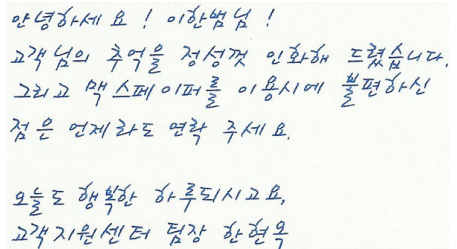 안녕하세요! 이한범님!
고객님의 추억을 정성껏 인화해 드렸습니다.
그리고 맥스페이퍼를 이용시에 불편하신
점은 언제라도 연락 주세요.
오늘도 행복한 하루되시고요,
고객지원센터 팀장 한현옥